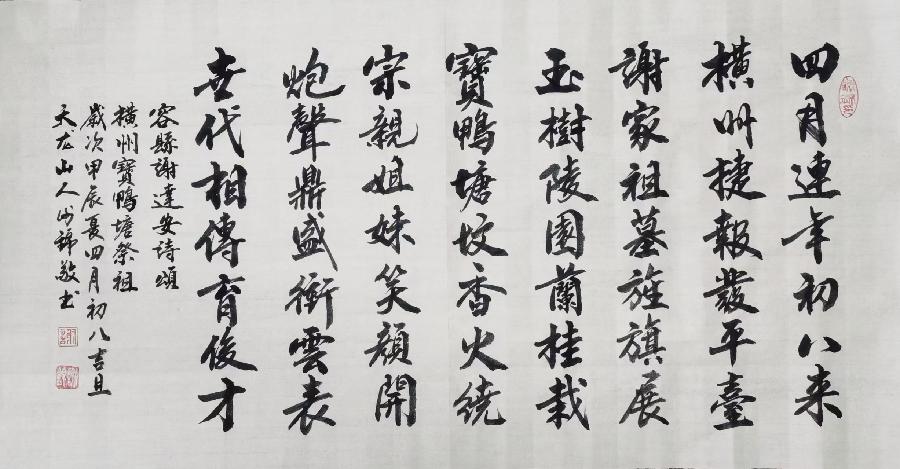 四月連年初八来
橫州捷報發平臺
謝家祖墓旌旗展
玉樹陵園蘭桂栽
寶鴨塘坟香火繞
宗親姐妹笑顔開
炮聲鼎盛衝雲表
世代相傳育後才
容縣謝達安詩頌
橫州寶鴨塘祭祖
歲次甲辰夏四月初八吉旦
天龙山人 錦敬书